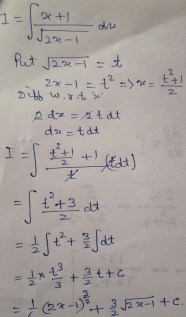 I = ∫ x+1 / √(2x-1) dx
Put √(2x-1) = t
2x-1 = t² => x = (t²+1)/2
Diff w.r.t x
2dx = 2tdt
dx = tdt
I = ∫ ((t²+1)/2 + 1) / t (tdt)
= ∫ (t²+3)/2 dt
= 1/2 ∫t² + 3/2 ∫dt
= 1/2 × t³/3 + 3/2 t + c
= 1/6 (2x-1)^(3/2) + 3/2 √(2x-1) + c.